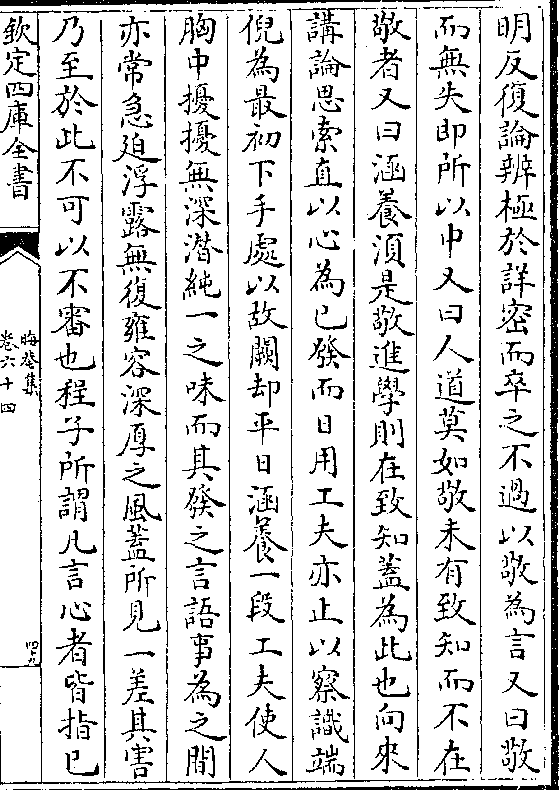 明反復論辨極於詳密而卒之不過以敬為言又曰敬
而無失即所以中又曰人道莫如敬未有致知而不在
敬者又曰涵養須是敬進學則在致知蓋為此也向來
講論思索直以心為已發而日用工夫亦止以察識端
倪為最初下手處以故闕却平日涵養一段工夫使人
胸中擾擾無深潛純一之味而其發之言語事為之間
亦常急迫浮露無復雍容深厚之風蓋所見一差其害
乃至於此不可以不審也程子所謂凡言心者皆指已
欽定四庫全書
晦菴集
卷六十四